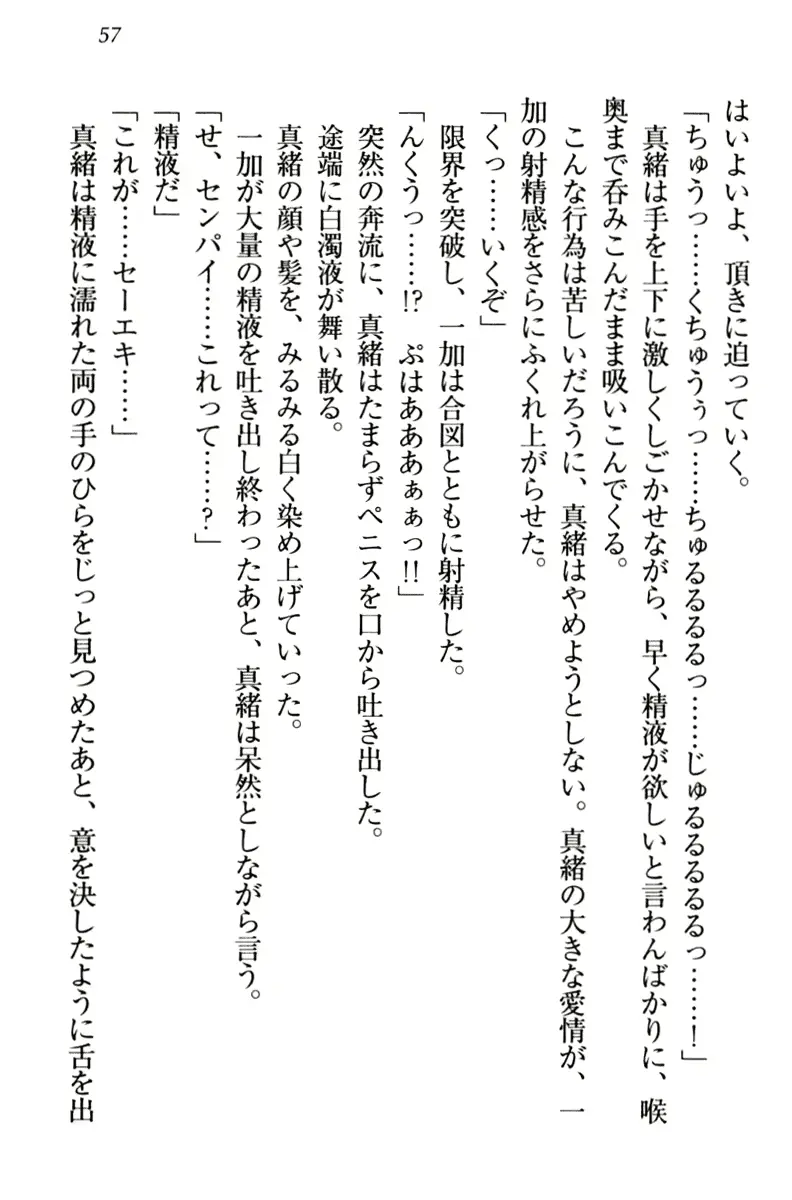 57
はいよいよ、頂きに迫っていく。
「ちゅうっ……くちゅうぅっ……ちゅるるるっ……じゅるるるるるっ……！」
真緒は手を上下に激しくしごかせながら、早く精液が欲しいと言わんばかりに、喉
奥まで呑みこんだまま吸いこんでくる。
こんな行為は苦しいだろうに、真緒はやめようとしない。真緒の大きな愛情が、一
加の射精感をさらにふくれ上がらせた。
「くっ……いくぞ」
限界を突破し、一加は合図とともに射精した。
「んくうっ……!?　ぷはあああぁぁっ!!」
突然の奔流に、真緒はたまらずペニスを口から吐き出した。
途端に白濁液が舞い散る。
真緒の顔や髪を、みるみる白く染め上げていった。
一加が大量の精液を吐き出し終わったあと、真緒は呆然としながら言う。
「せ、センパイ……これって……？」
「精液だ」
「これが……セーエキ……」
真緒は精液に濡れた両の手のひらをじっと見つめたあと、意を決したように舌を出